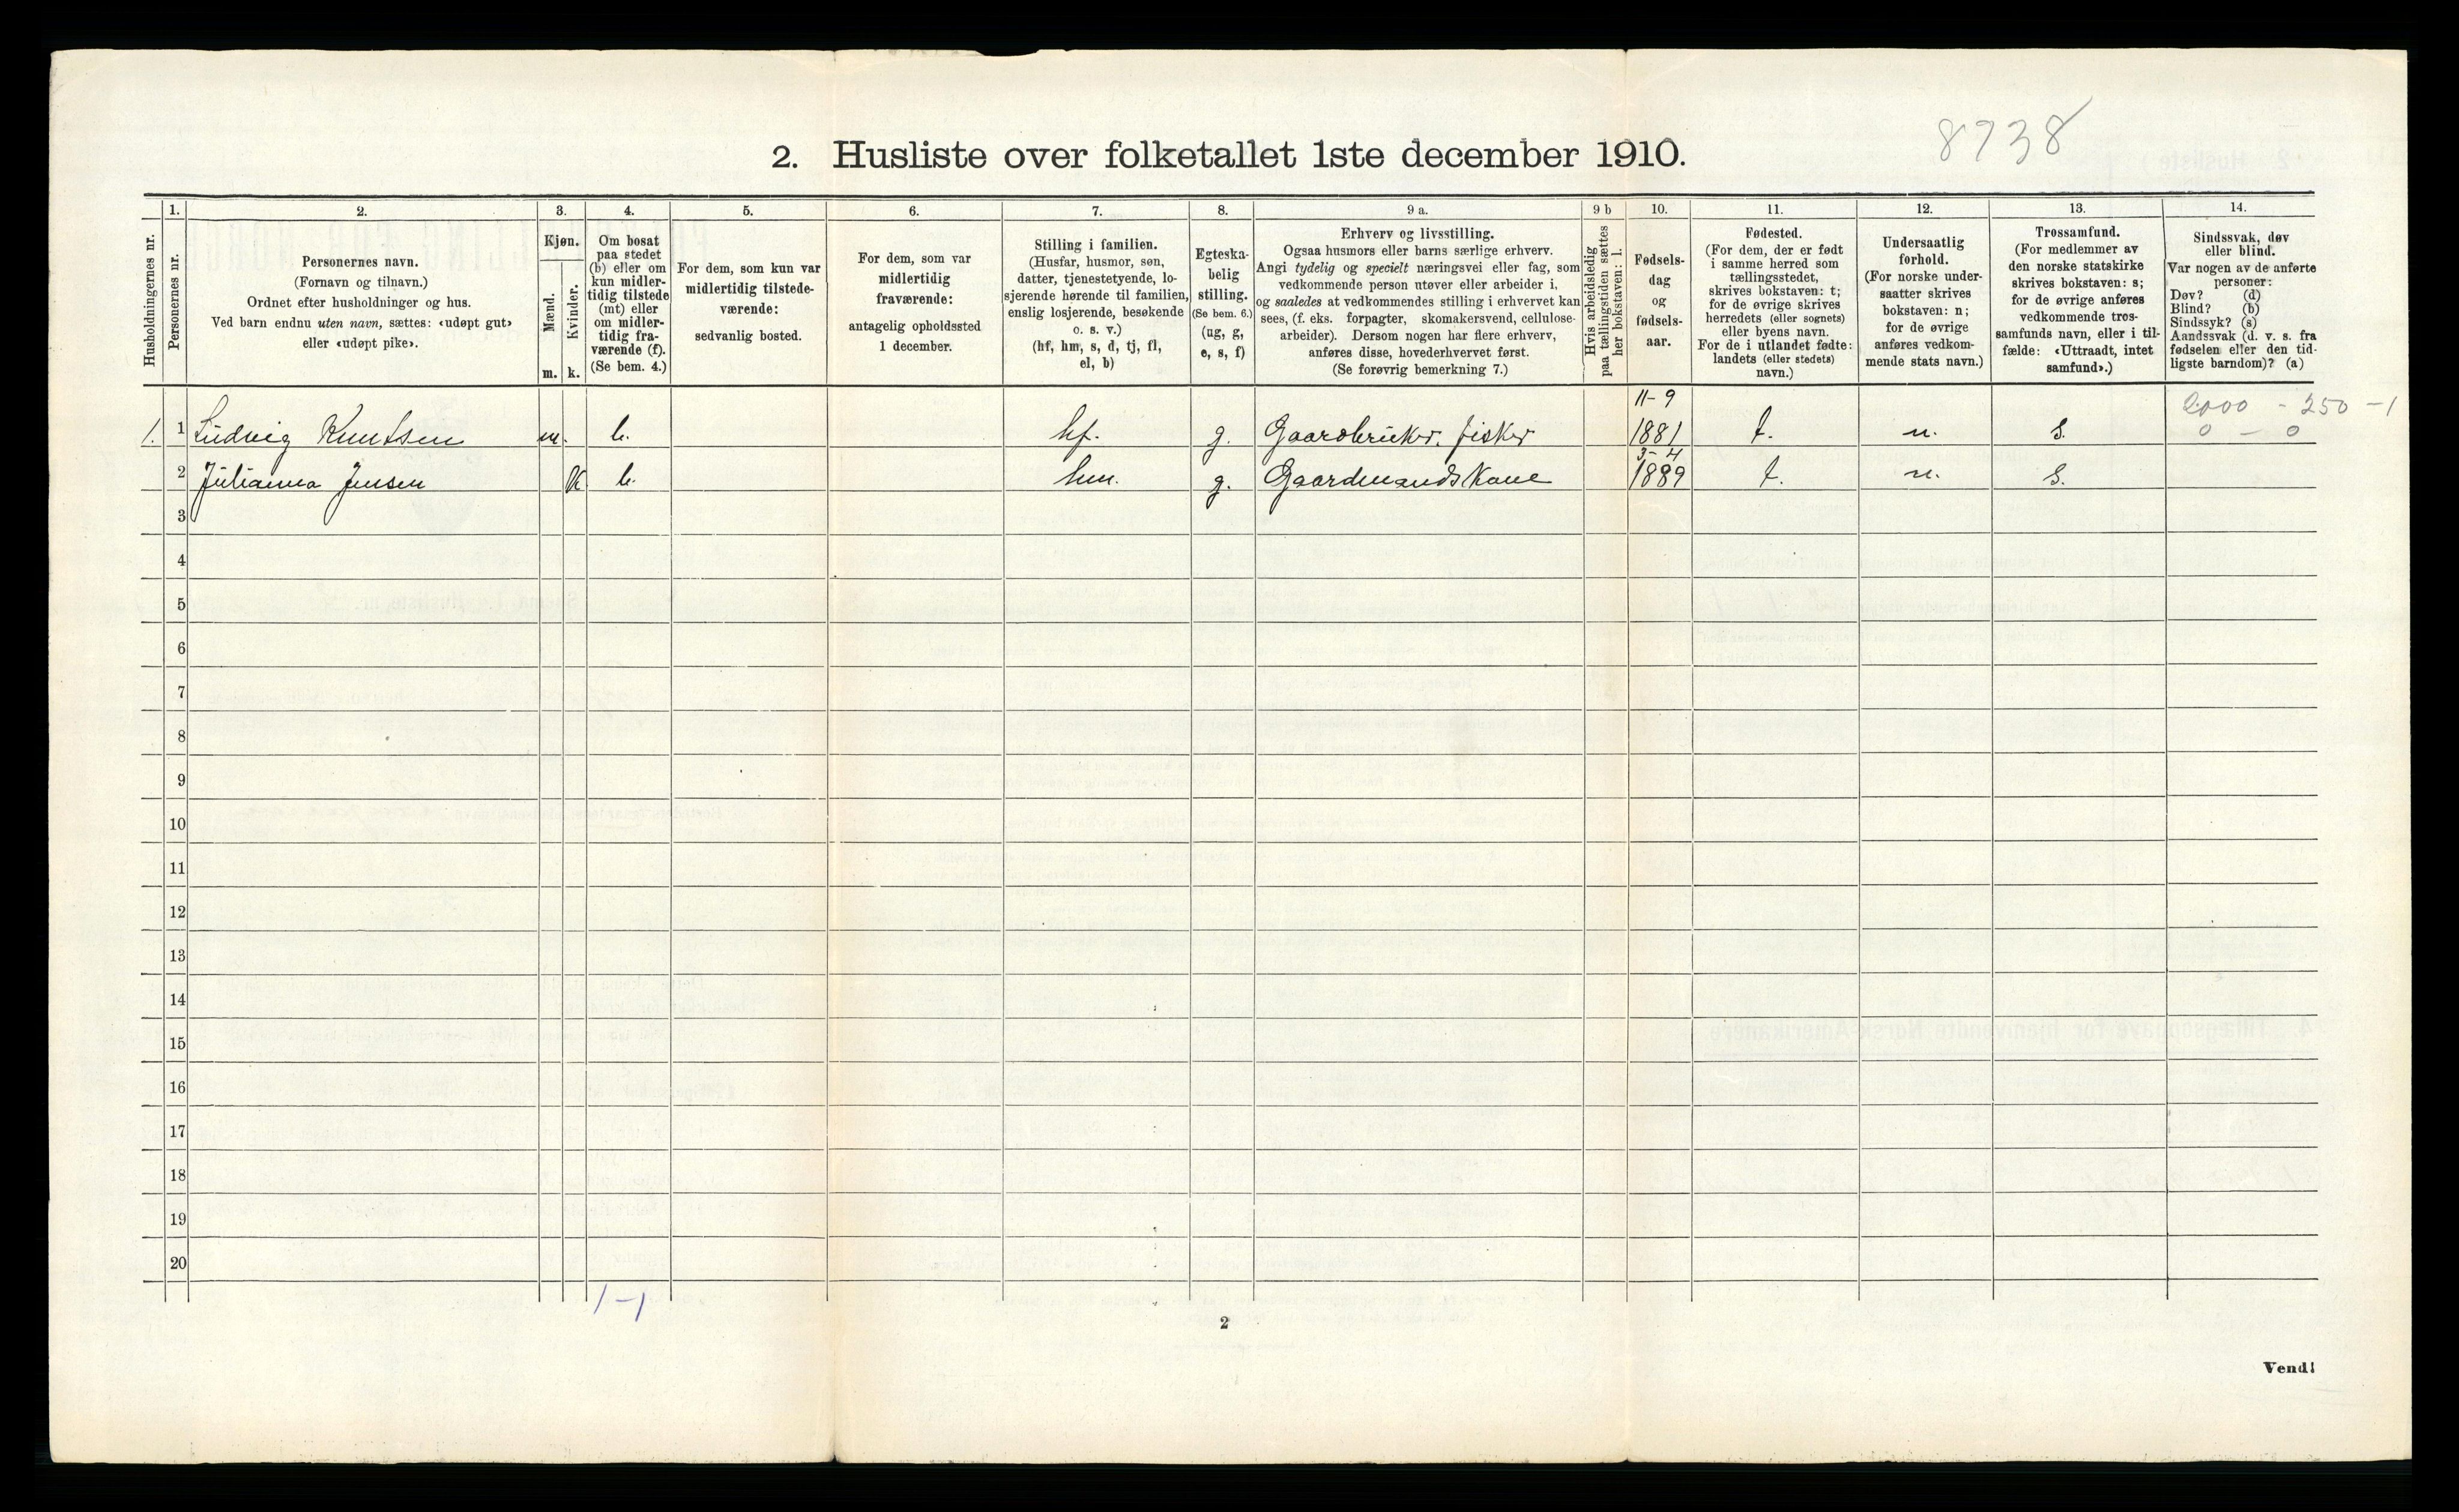 8738
2. Husliste over folketallet 1ste december 1910.
Husholdningernes nr.
1.
Personernes nr.
2.
Personernes navn.
(Fornavn og tilnavn.)
Ordnet efter husholdninger og hus.
Ved barn endnu uten navn, sættes: «udøpt gut»
eller «udøpt pike».
3.
Kjøn.
Mænd.
Kvinder.
m. k.
4.
Om bosat
paa stedet
(b) eller om
kun midler-
tidig tilstede
(mt) eller
om midler-
tidig fra-
værende (f).
(Se bem. 4.)
5.
For dem, som kun var
midlertidig tilstede-
værende:
sedvanlig bosted.
6.
For dem, som var
midlertidig
fraværende:
antagelig opholdssted
1 december.
7.
Stilling i familien.
(Husfar, husmor, søn,
datter, tjenestetyende, lo-
sjerende hørende til familien,
enslig losjerende, besøkende
o. s. v.)
(hf, hm, s, d, tj, fl,
el, b)
8.
Egteska-
belig
stilling.
(Se bem. 6.)
(ug, g,
e, s, f)
9 a.
Erhverv og livsstilling.
Ogsaa husmors eller barns særlige erhverv.
Angi tydelig og specielt næringsvei eller fag, som
vedkommende person utøver eller arbeider i,
og saaledes at vedkommendes stilling i erhvervet kan
sees, (f. eks. forpagter, skomakersvend, cellulose-
arbeider). Dersom nogen har flere erhverv,
anføres disse, hovederhvervet først.
(Se forøvrig bemerkning 7.)
9 b
Hvis arbeidsledig
paa tællingstiden sættes
her bokstaven: l.
10.
Fødsels-
dag
og
fødsels-
aar.
11.
Fødested.
(For dem, der er født
i samme herred som
tællingsstedet,
skrives bokstaven: t;
for de øvrige skrives
herredets (eller sognets)
eller byens navn.
For de i utlandet fødte:
landets (eller stedets)
navn.)
12.
Undersaatlig
forhold.
(For norske under-
saatter skrives
bokstaven: n;
for de øvrige
anføres vedkom-
mende stats navn.)
13.
Trossamfund.
(For medlemmer av
den norske statskirke
skrives bokstaven: s;
for de øvrige anføres
vedkommende tros-
samfunds navn, eller i til-
fælde: «Uttraadt, intet
samfund».)
14.
Sindssvak, døv
eller blind.
Var nogen av de anførte
personer:
Døv? (d)
Blind? (b)
Sindssyk? (s)
Aandssvak (d. v. s. fra
fødselen eller den tid-
ligste barndom)? (a)
11-9 2000 - 250 -1
1. 1 Ludvig Knutsen m. b. hf. g. Gaardbruker. fisker 1881 t. n. s. 0 - 0
3-4
2 Julianna Jensen k b. hm. g. Gaardmandskone 1889 t. n. s.
3
4
5
6
7
8
9
10
11
12
13
14
15
16
17
18
19
20
1-1
2
Vend!